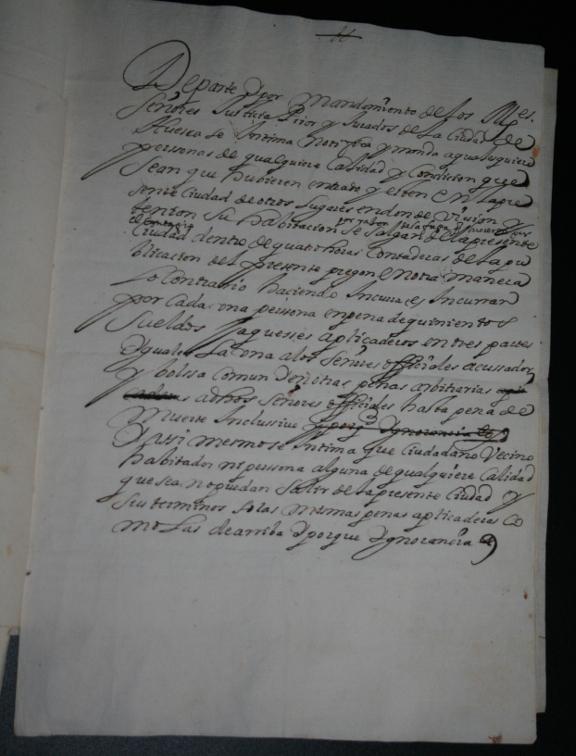 De parte y por Mandamiento de los Illes.
Señores Justicia Prior y Jurados de la Ciudad de
Huesca Se Intima Notifica y manda a qualesquiere
personas de qualquiere Calidad y Condicion que
Sean que hubieren entrado y esten en la pre
sente Ciudad de otros lugares en donde vivian y
tenian Su habitacion Se Salgan de la presente
Ciudad dentro de quatro horas Contaderas de la pu
blicacion del presente pregon En otra manera
Lo Contrario haciendo Incurra es Incurran
por cada una persona en pena de quinientos
Sueldos Jaqueses aplicaderos en tres partes
Iguales La una a los Señores officiales acussador
y bolssa Comun y en otras penas arbitrarias
a dhos Señores officiales hasta pena de
Muerte Inclussive
Y assi mesmo se Intima que Ciudadano Vecino
habitador ni persona alguna de qualquiere Calidad
que sea no puedan Salir de la presente Ciudad y
Sus terminos So las mesmas penas aplicaderas Co
mo Las de arriba Y porque Ignorancia